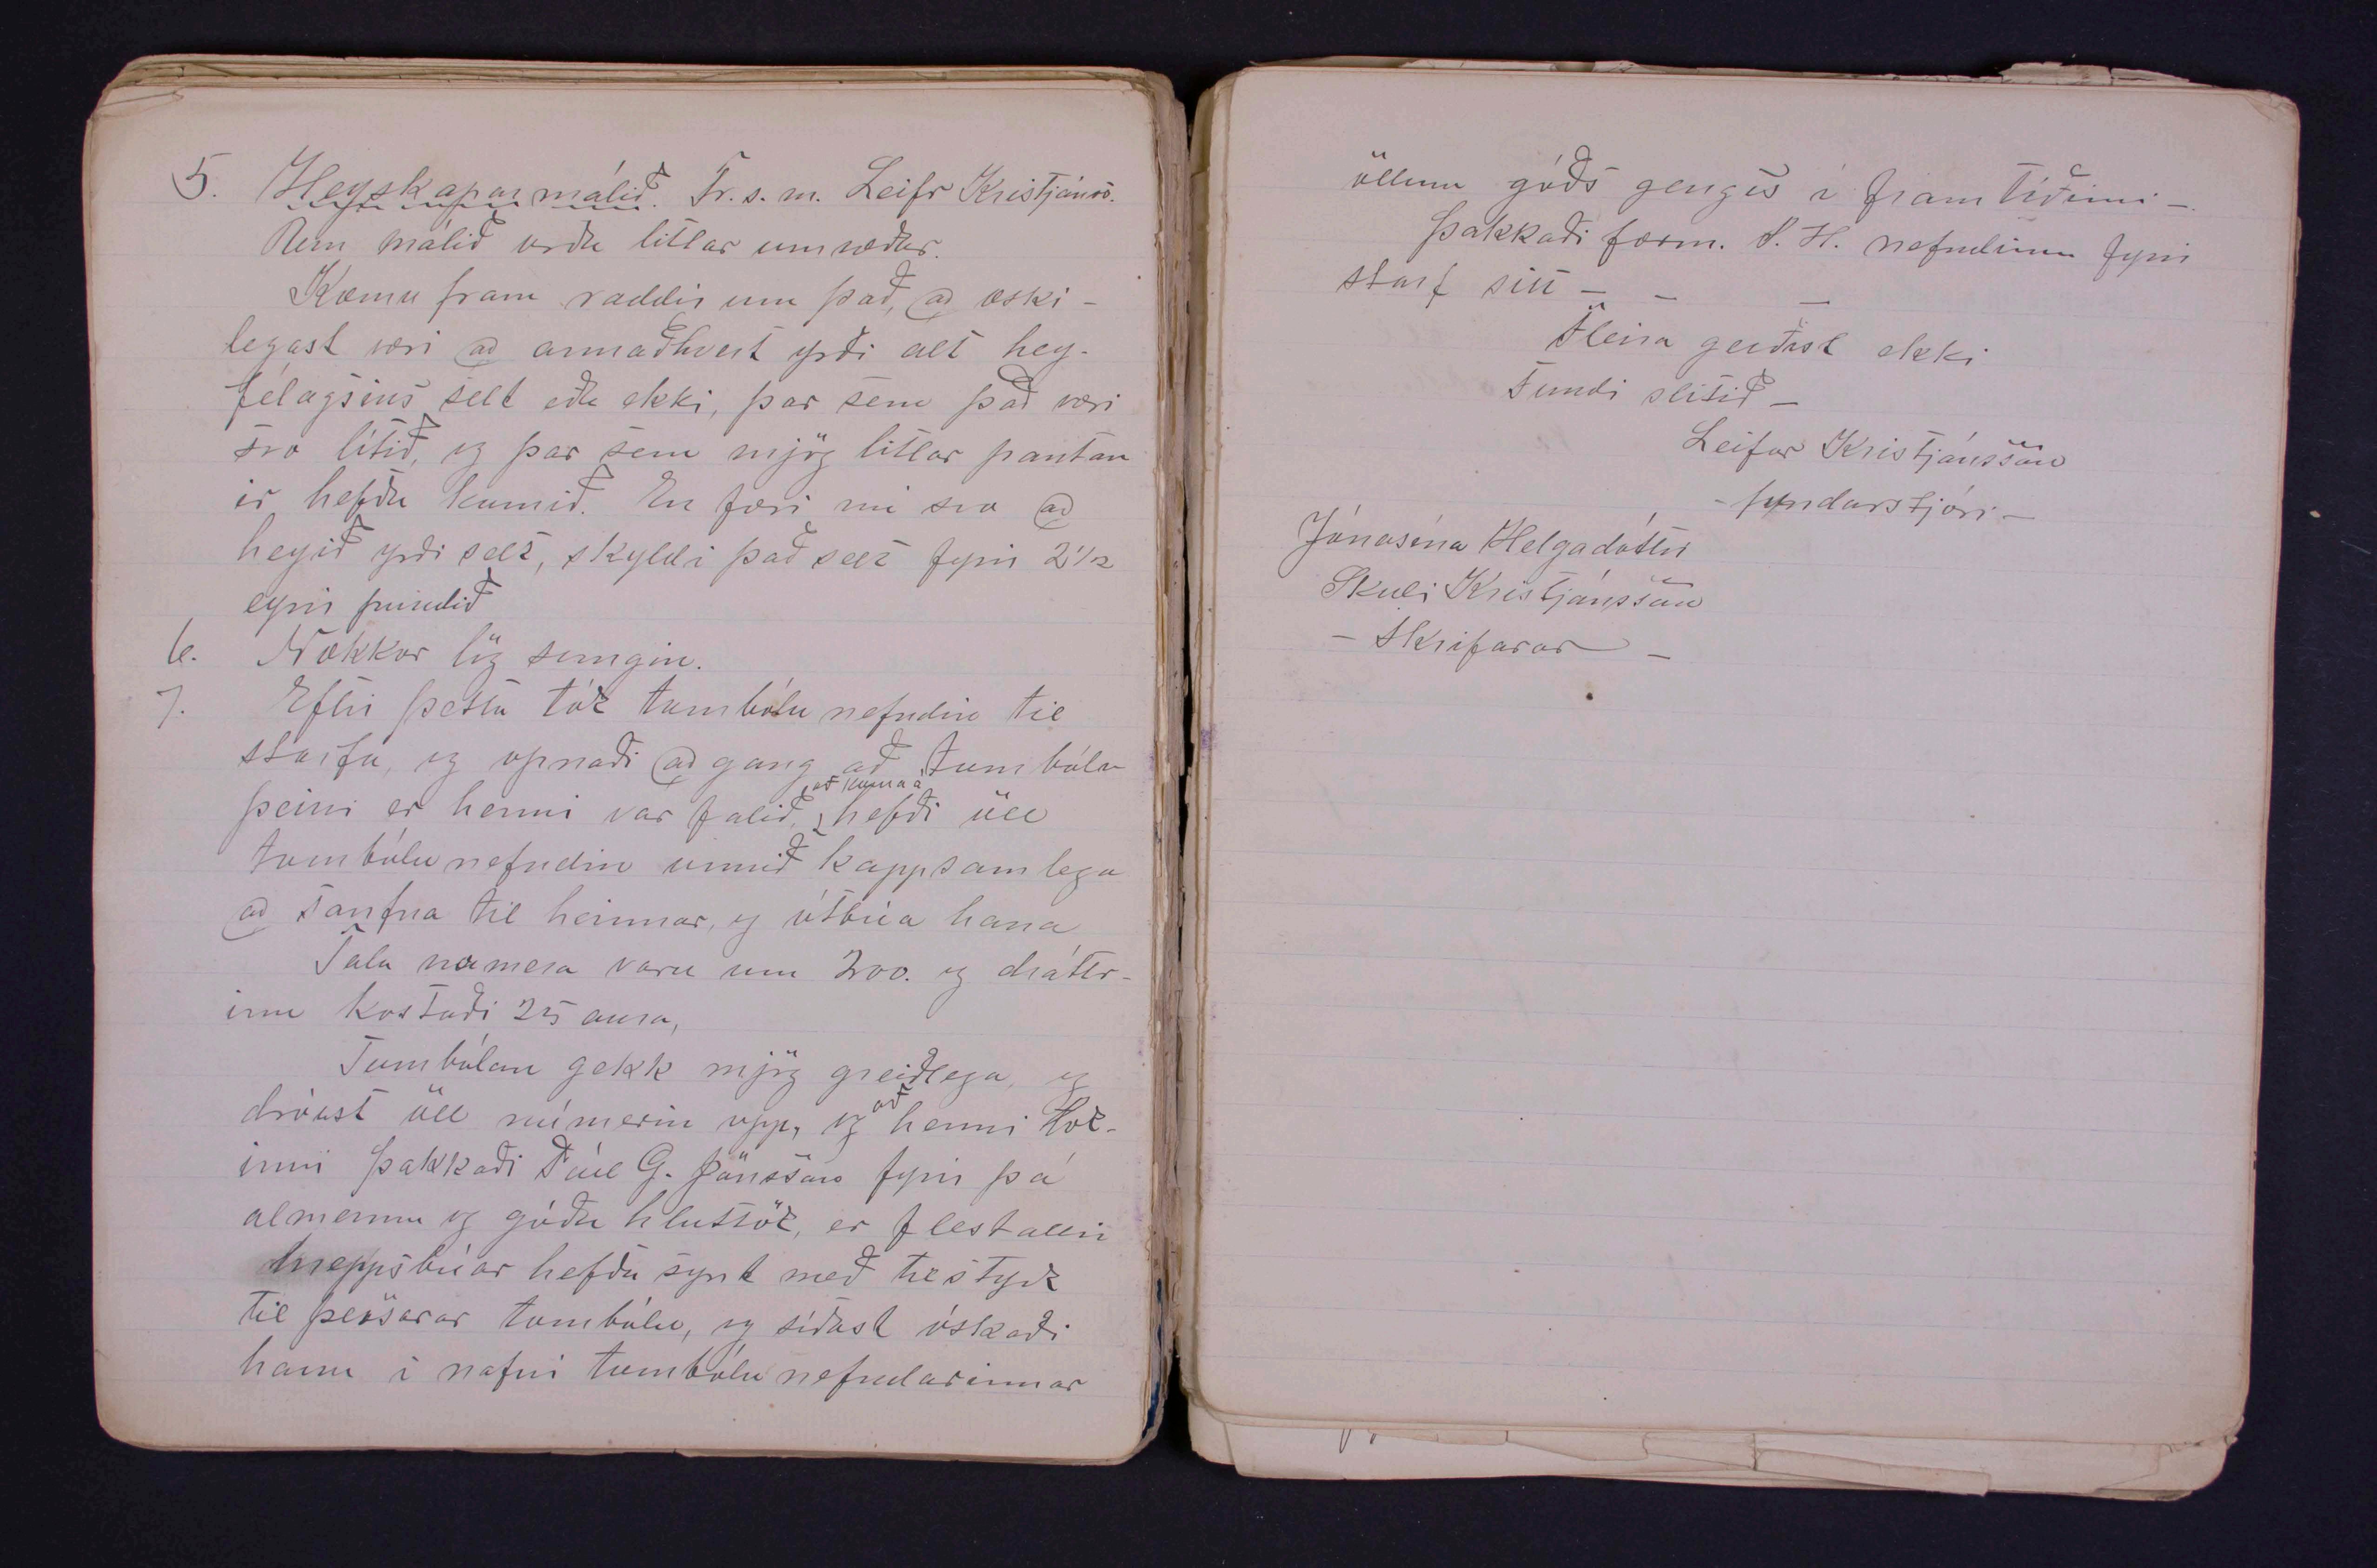 5. Heyskaparmálið. Fr. s. m. Leifr Kristjánss.
Um málið urðu litlar umræður.
Komu fram raddir um það, að æski-
legast væri að annaðhvert yrði alt hey-
félagsins selt eða ekki, þar sem það væri
svo lítið, og þar sem mjög litlar pantan
ir hefðu komið. En færi nú svo að
heyið yrði selt, skyldi það selt fyrir 2 1/2
eyrir pundið
6. Nokkor lög sungin.
7. Eftir þetta tók tombólu nefndin til
starfa, og opnaði aðgang að tombólu
þeirri er henni var falið, að koma á hefði öll
tombólunefndin unnið kappsamlega
að safna til hennar, og útbúa hana
Tala númera voru um 200. og dráttr-
inn kostaði 25 aura,
Tombólan gekk mjög greiðlega, og
dróust öll númerin upp, og að henni lok-
inni þakkaði Páll G. Jónsson fyrir þá
almennu og góðu hluttök, er flestallir
hreppsbúar hefðu sýnt með tilstyrk
til þessarar tombólu, og síðast óskaði
hann í nafni tombólu nefndarinnar
öllum góðs gengis í framtíðinni -
Þakkaði form. S. H. nefndinni fyrir
starf sitt - - -
Fleira gerðist ekki
Fundi slitið -
Leifur Kristjánsson
- fundarstjóri -
Jónasína Helgadóttir
Skuli Kristjánsson
- Skrifarar -